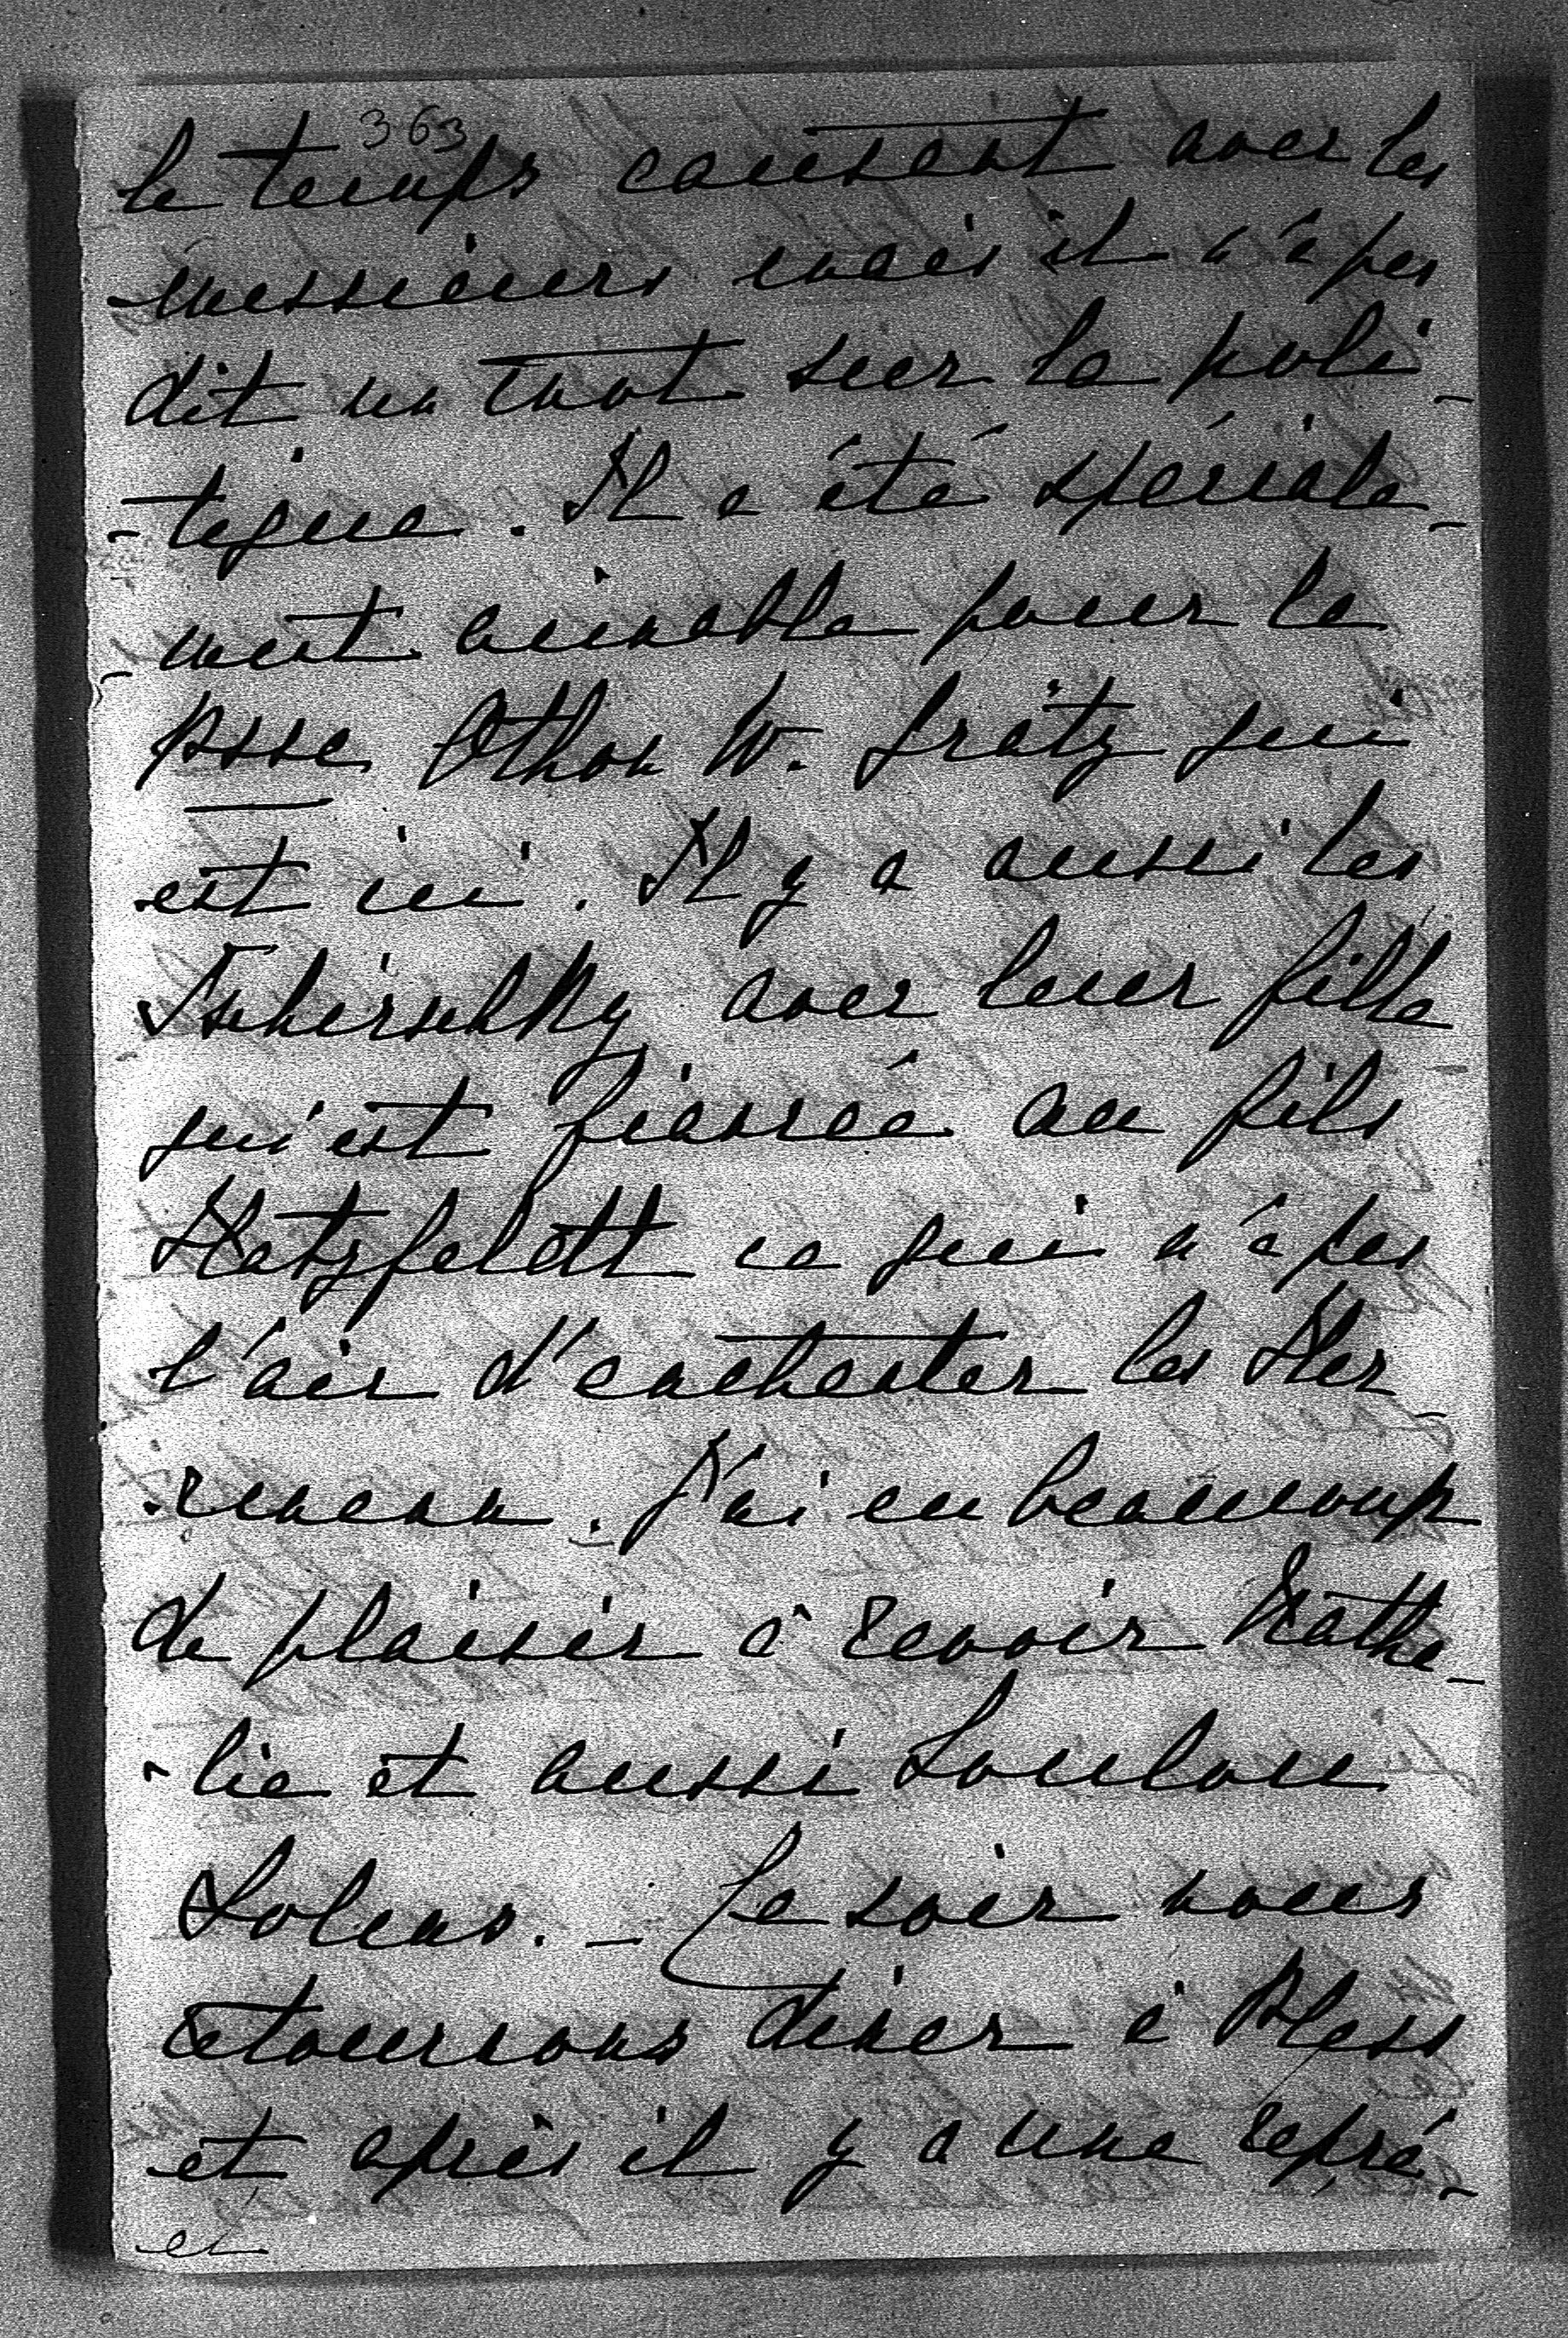 363
le temps causent avec les
messieurs mais il n'a pas
dit un mot sur la poli-
-tique. Il a été spéciale-
-ment aimable pour la
Psse Othon W. Grätz qui
est ici. Il y a aussi les
Tschirschky avec leur fille
qui est fiancée au fils
Hatzfeldt ce qui n'a pas
l'air d'enchanter les Her-
renann. J'ai eu beaucoup
de plaisir à revoir Nathe-
-lie et aussi Loulou
Solms. - Ce soir nous
retournons diner à Pless
et après il y a une repré-
et